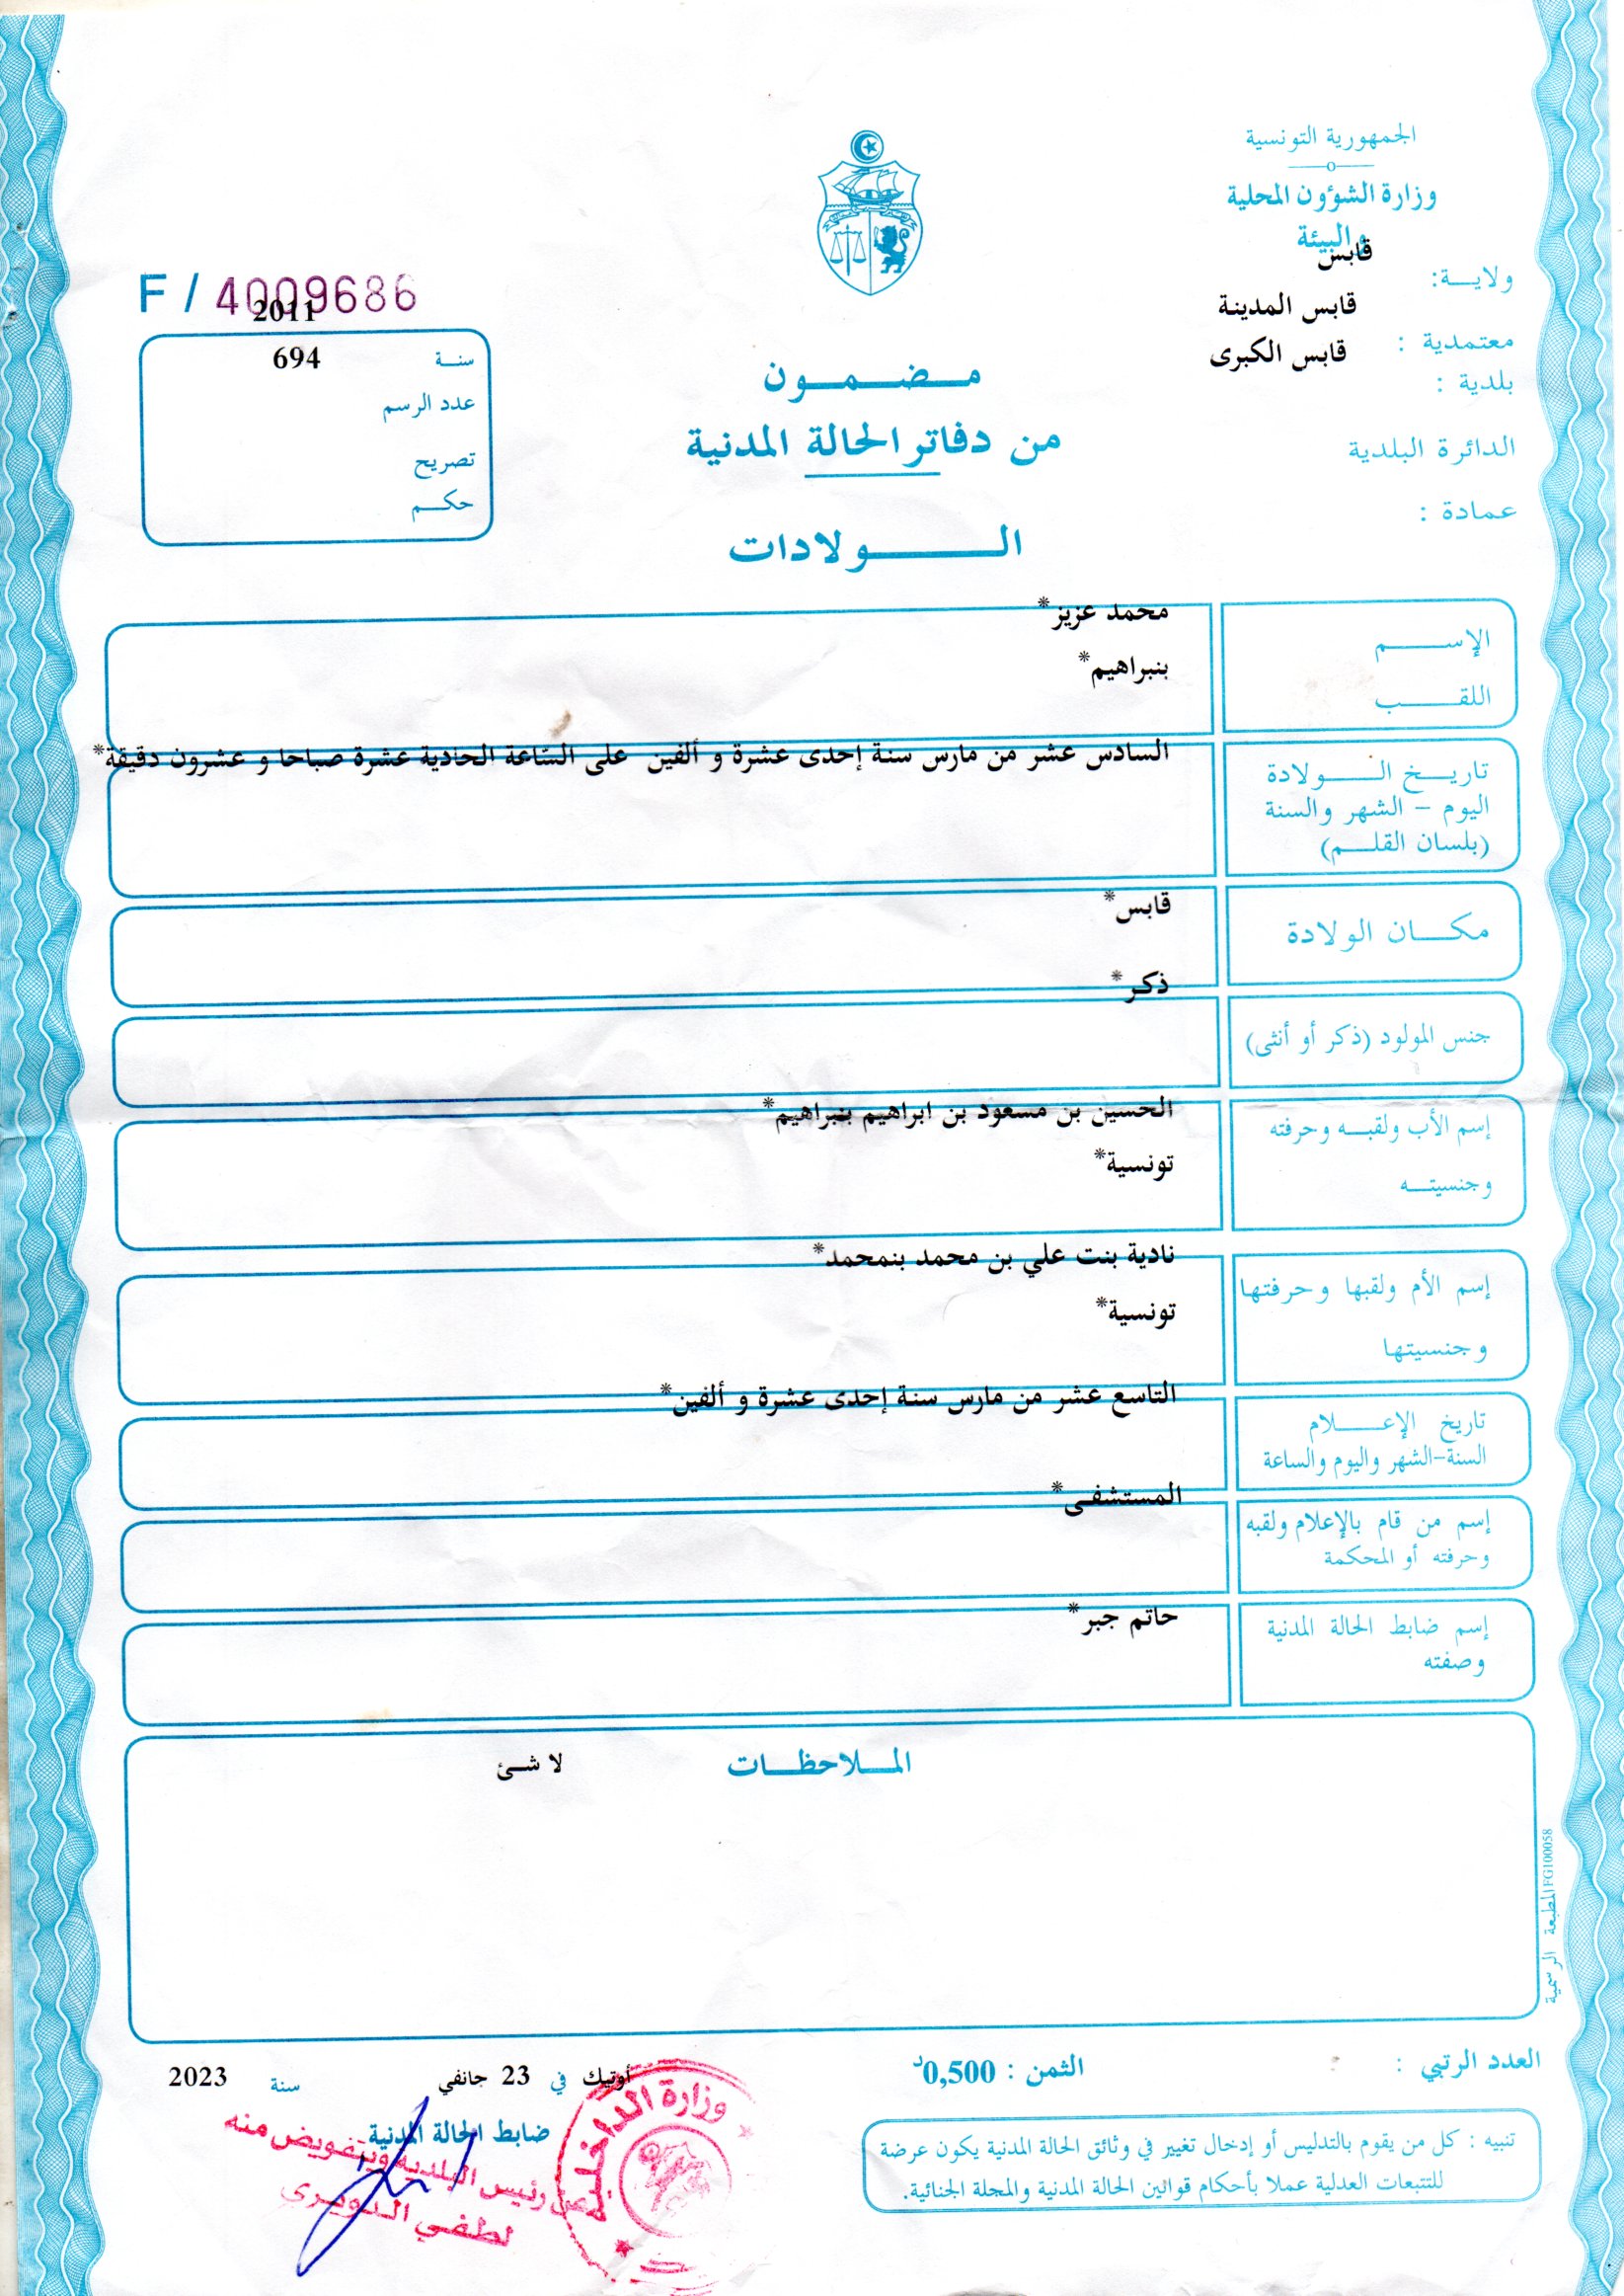 الجمهورية التونسية
وزارة الشؤون المحلية
والبيئة
ولاية: قابس
معتمدية : قابس المدينة
بلدية : قابس الكبرى
الدائرة البلدية
عمادة :
F / 4009686
سنة 2011
عدد الرسم 694
تصريح
حكم
مضمون
من دفاتر الحالة المدنية
الولادات
الإسم محمد عزيز*
اللقب بنبراهيم*
تاريخ الولادة السادس عشر من مارس سنة إحدى عشرة و ألفين على الساعة الحادية عشرة صباحا و عشرون دقيقة*
اليوم - الشهر والسنة
(بلسان القلم)
مكان الولادة قابس*
جنس المولود (ذكر أو أنثى) ذكر*
إسم الأب ولقبه وحرفته الحسين بن مسعود بن ابراهيم بنبراهيم*
وجنسيته تونسية*
إسم الأم ولقبها وحرفتها نادية بنت علي بن محمد بنمحمد*
وجنسيتها تونسية*
تاريخ الإعلام التاسع عشر من مارس سنة إحدى عشرة و ألفين*
السنة-الشهر واليوم والساعة
إسم من قام بالإعلام ولقبه المستشفى*
وحرفته أو المحكمة
إسم ضابط الحالة المدنية حاتم جبر*
وصفته
الملاحظات لا شئ
المطبعة الرسمية FG100058
العدد الرتبي :
الثمن : 0,500د
أوتيك في 23 جانفي سنة 2023
ضابط الحالة المدنية
وزارة الداخلية
عن رئيس البلدية وبتفويض منه
لطفي الدويري
تنبيه : كل من يقوم بالتدليس أو إدخال تغيير في وثائق الحالة المدنية يكون عرضة
للتتبعات العدلية عملا بأحكام قوانين الحالة المدنية والمجلة الجنائية.